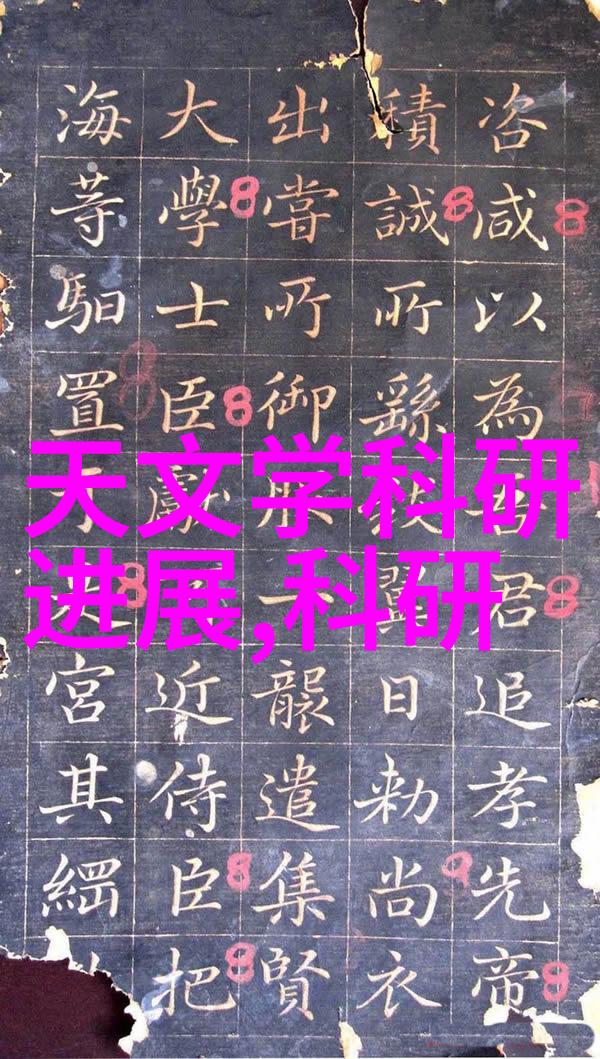 天文学科研
进展,科研
咨咸以為君追孝先帝
積誠所繇日勅尚衣
出嘗所御服一襲遣集賢
大學士臣近侍臣把
海等馹置宮其綱